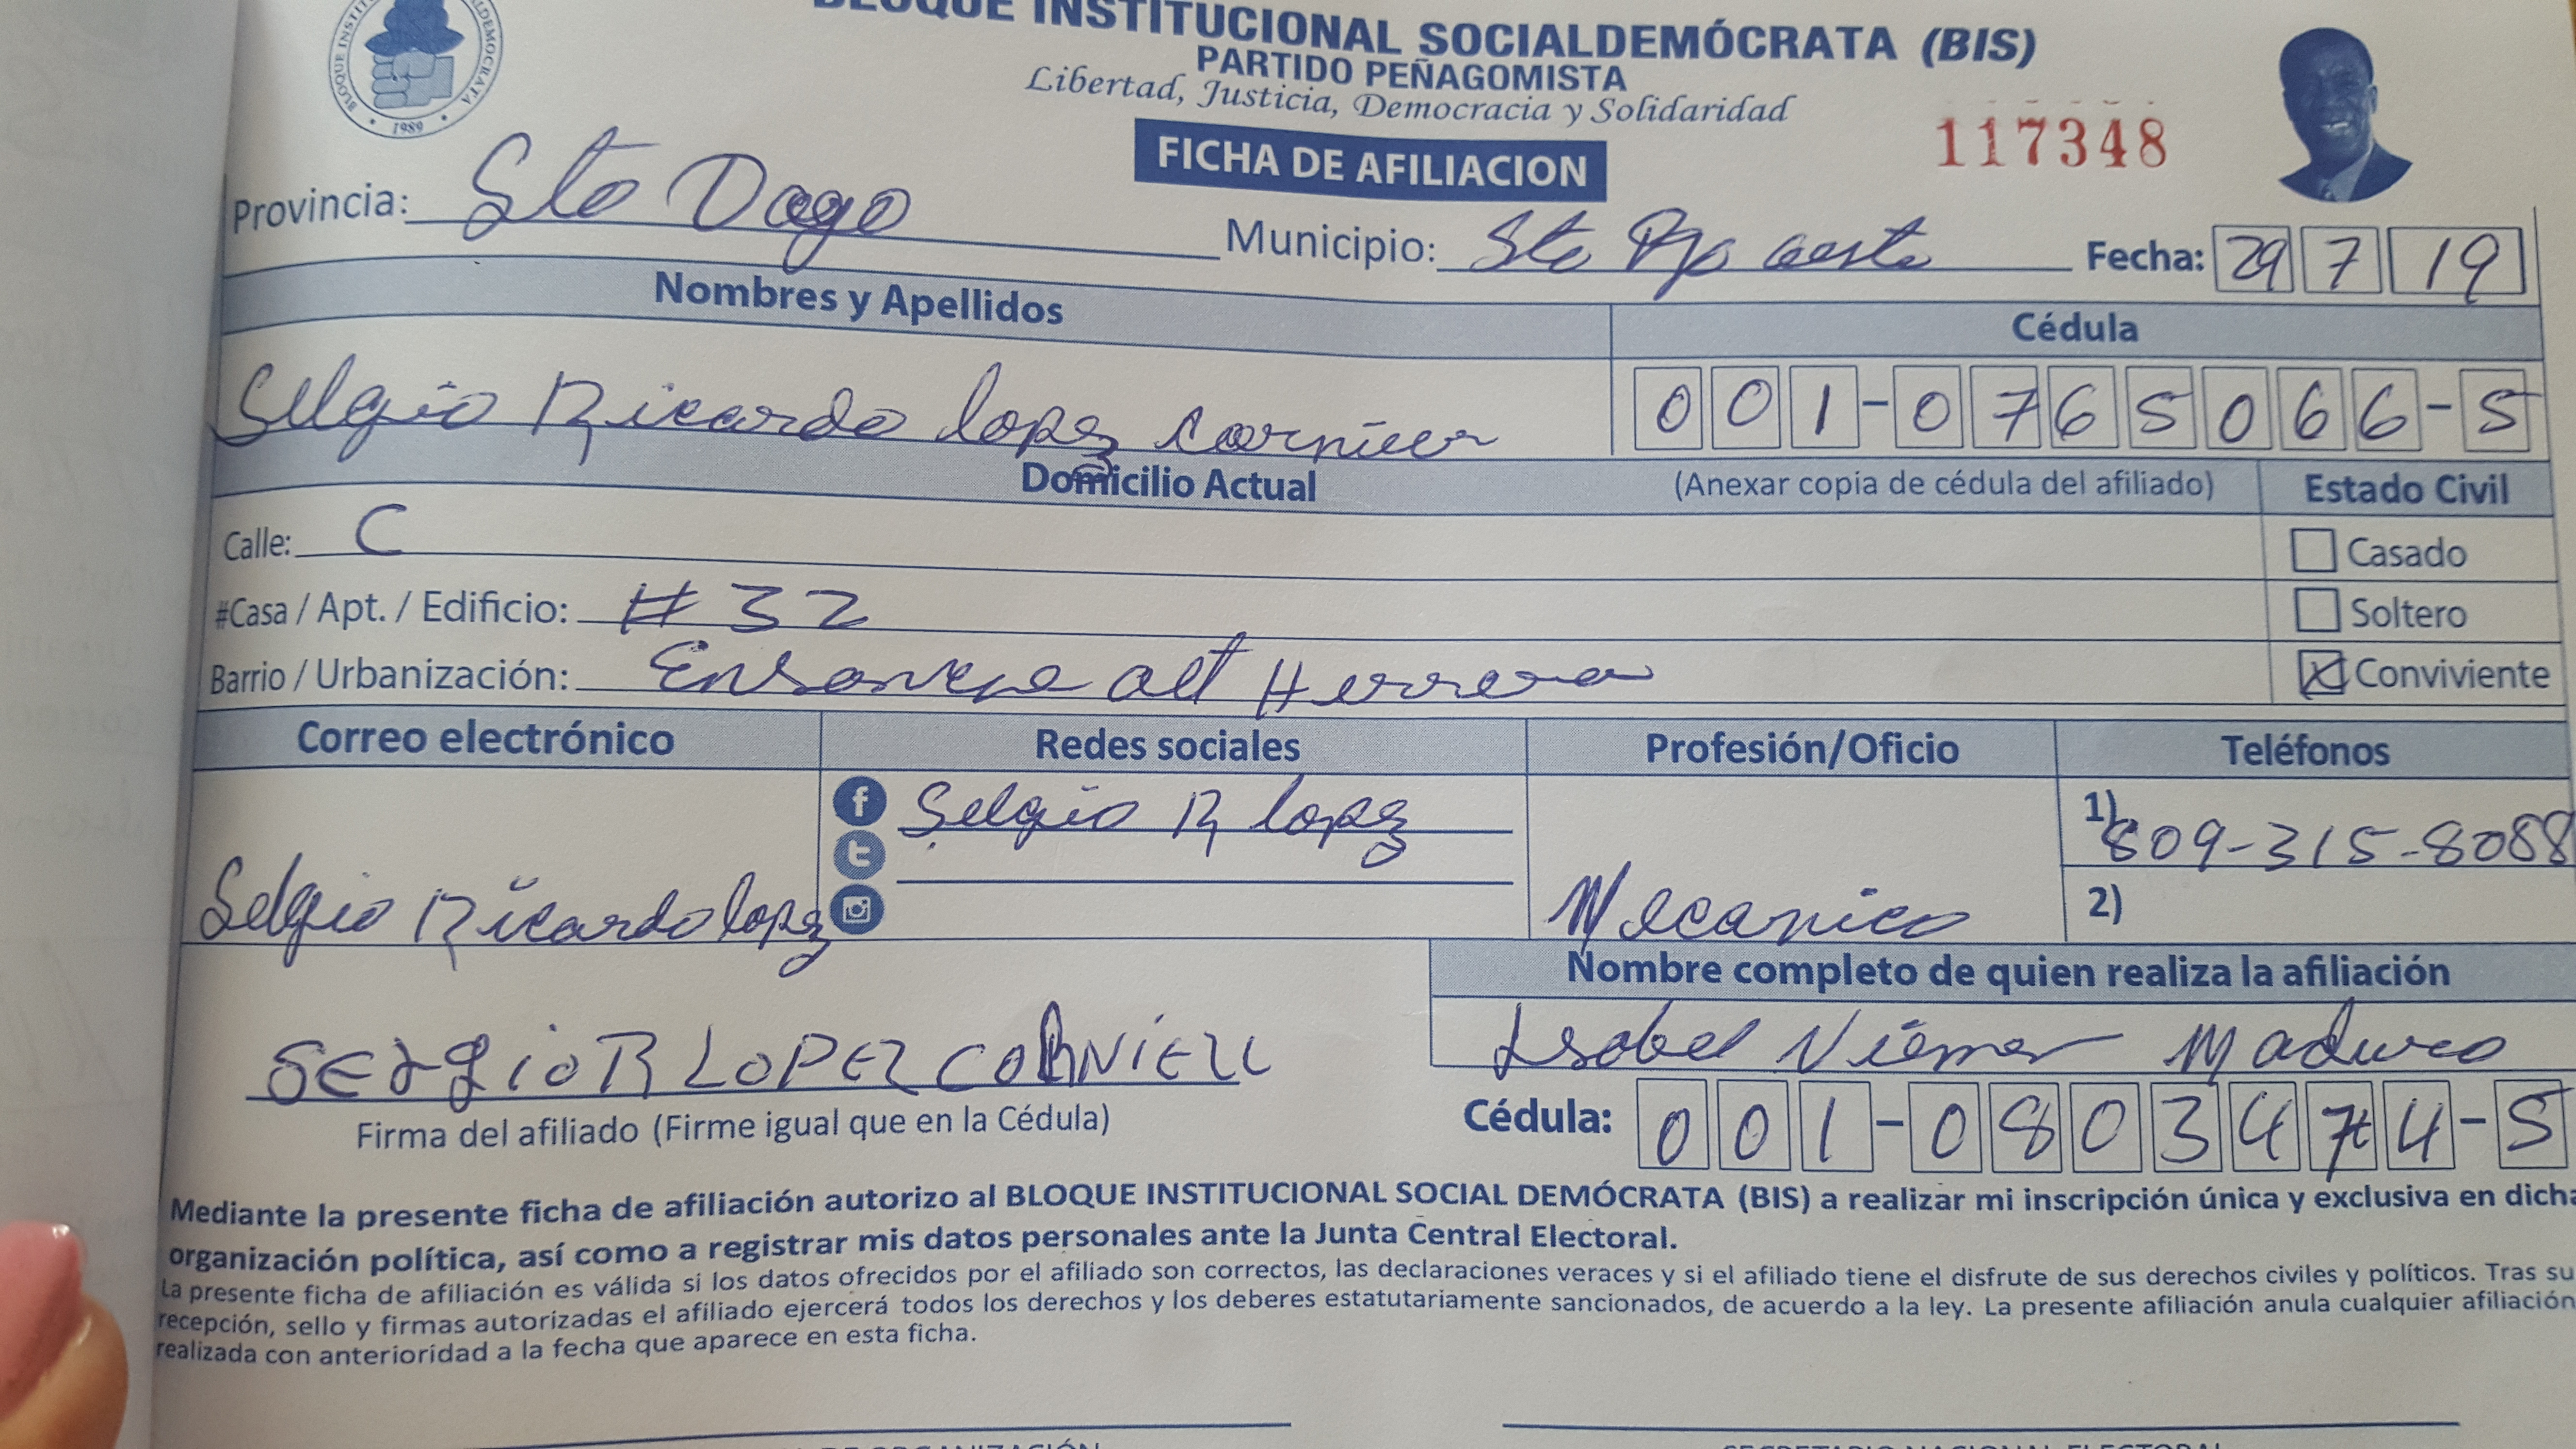 BLOQUE INSTITUCIONAL SOCIALDEMÓCRATA (BIS)
PARTIDO PEÑAGOMISTA
Libertad, Justicia, Democracia y Solidaridad
1989
FICHA DE AFILIACION
117348
Provincia: Sto Dgo
Municipio: Sto Dgo oeste
Fecha: 29 7 19
Nombres y Apellidos
Cédula
Selgio Ricardo lopez Corniell
001-0765066-5
Domicilio Actual
(Anexar copia de cédula del afiliado)
Estado Civil
Calle: C
Casado
#Casa / Apt. / Edificio: # 32
Soltero
Barrio / Urbanización: Ensanche alt Herrera
Conviviente
Correo electrónico
Redes sociales
Profesión/Oficio
Teléfonos
Selgio R lopez
1) 809-315-8088
Selgio Ricardo lopez
Mecanico
2)
Nombre completo de quien realiza la afiliación
Isabel Maduro
SERgio R LOPEZ CORNIELL
Firma del afiliado (Firme igual que en la Cédula)
Cédula: 001-0803474-5
Mediante la presente ficha de afiliación autorizo al BLOQUE INSTITUCIONAL SOCIAL DEMÓCRATA (BIS) a realizar mi inscripción única y exclusiva en dicha
organización política, así como a registrar mis datos personales ante la Junta Central Electoral.
La presente ficha de afiliación es válida si los datos ofrecidos por el afiliado son correctos, las declaraciones veraces y si el afiliado tiene el disfrute de sus derechos civiles y políticos. Tras su
recepción, sello y firmas autorizadas el afiliado ejercerá todos los derechos y los deberes estatutariamente sancionados, de acuerdo a la ley. La presente afiliación anula cualquier afiliación
realizada con anterioridad a la fecha que aparece en esta ficha.